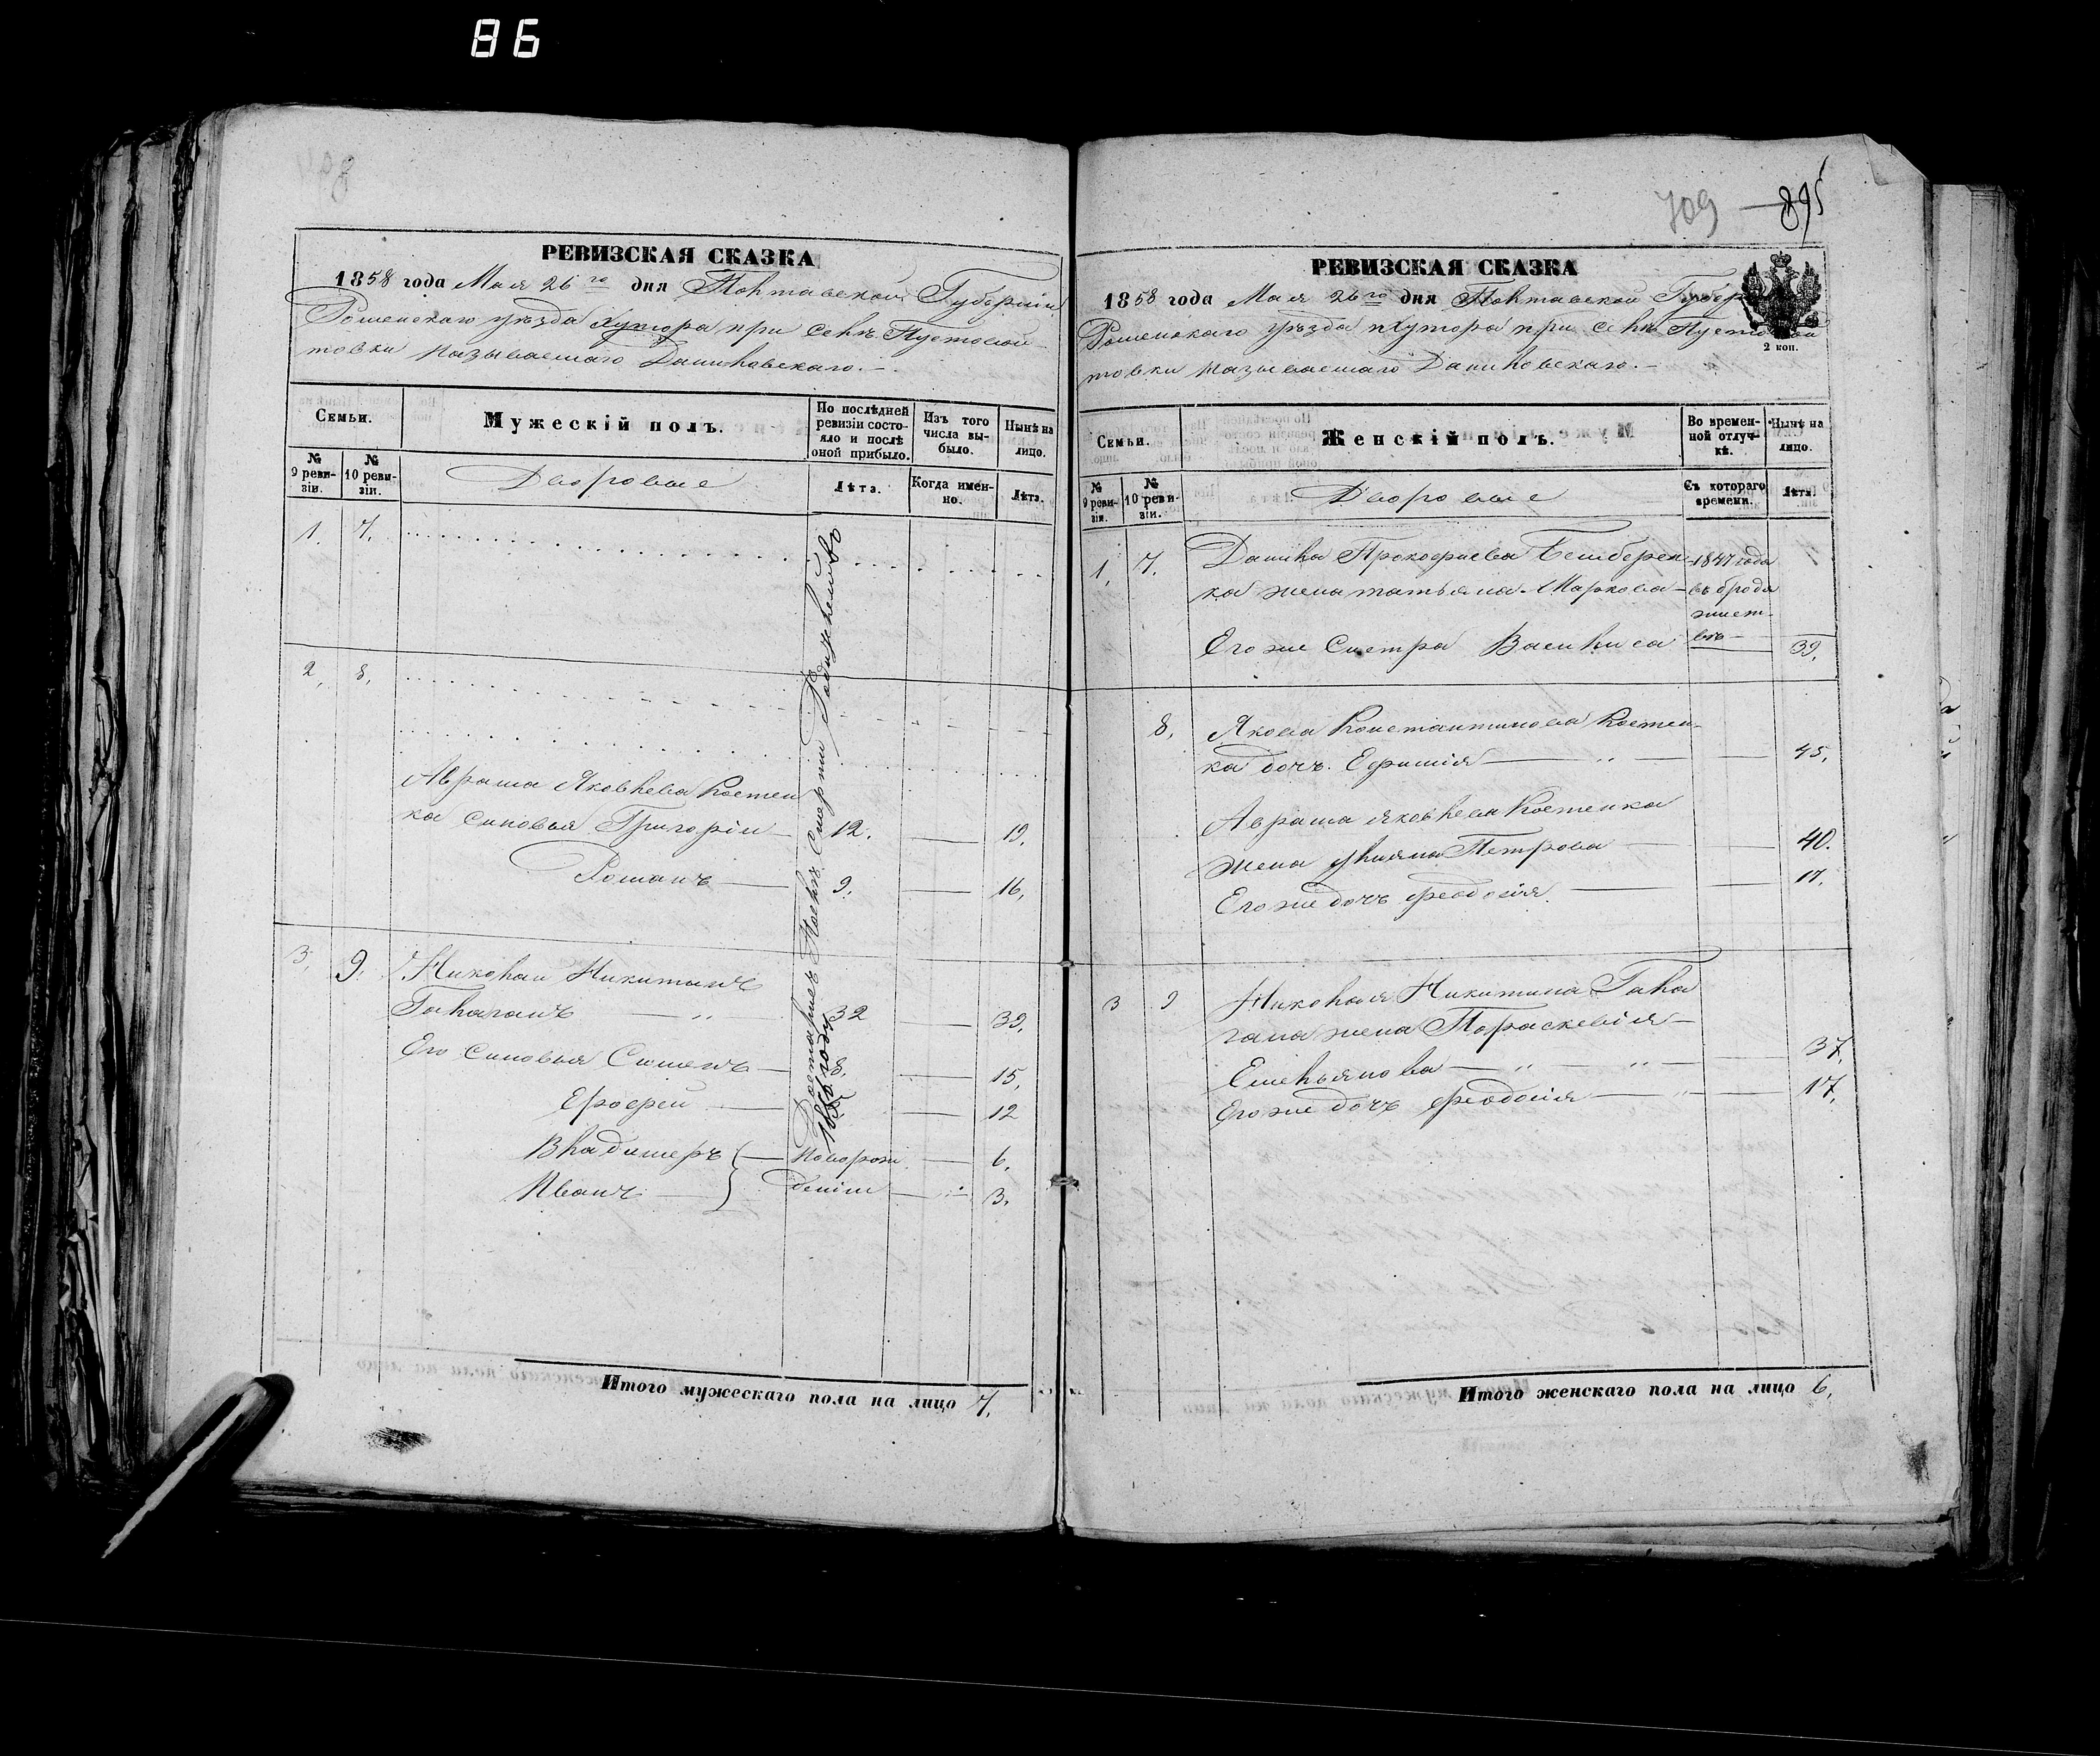 86
709 895
РЕВИЗСКАЯ СКАЗКА
1858 года Мая 26го дня Полтавской Губерніи
Роменскаго уѣзда хутора при селѣ Пустовой
товки называемаго Даниловскаго.
Семьи.
Мужескій полъ.
По послѣдней ревизіи состояло и послѣ оной прибыло.
Изъ того числа выбыло.
Нынѣ на лицо.
№ 9 ревизіи.
№ 10 ревизіи.
Дворовые
Лѣта.
Когда именно.
Лѣта.
1. 7.
2, 8,
Аврама Яковлева Костен
ка сыновья Григорій 12. 19.
Романъ 9. 16,
3, 9. Николай Никитинъ
Галаганъ 32 39.
Его сыновья Сѣменъ 8. 15,
Ерофей 12
Владимеръ Новорож 6.
Иванъ денни 3.
Достались Послѣ Смерти Родителейво
Итого мужескаго пола на лицо 7.
РЕВИЗСКАЯ СКАЗКА
1858 года Мая 26го дня Полтавской Губер
Роменскаго уѣзда хутора при селѣ Пустовой
товки называемаго Даниловскаго.
2 коп.
Семьи.
Женскій полъ.
Во временной отлучкѣ.
Нынѣ на лицо.
№ 9 ревизіи.
№ 10 ревизіи.
Дворовые
Съ котораго времени.
Лѣта.
1, 7. Данила Прокофіева Бемберен 1847 года
ка жена татьяна Маркова въ брода
жнет
Его же Систра Василиса вѣ 39,
8, Якова Константинова Костен
ка дочь Ефимія 45,
Аврама Яковлева Костенка
жена Ульяна Петрова 40.
Его же дочь феодосія. 17.
3 9 Николая Никитина Гала
гана жена Параскевія
Емельянова 37,
Его же дочь феодосія 17,
Итого женскаго пола на лицо 6,